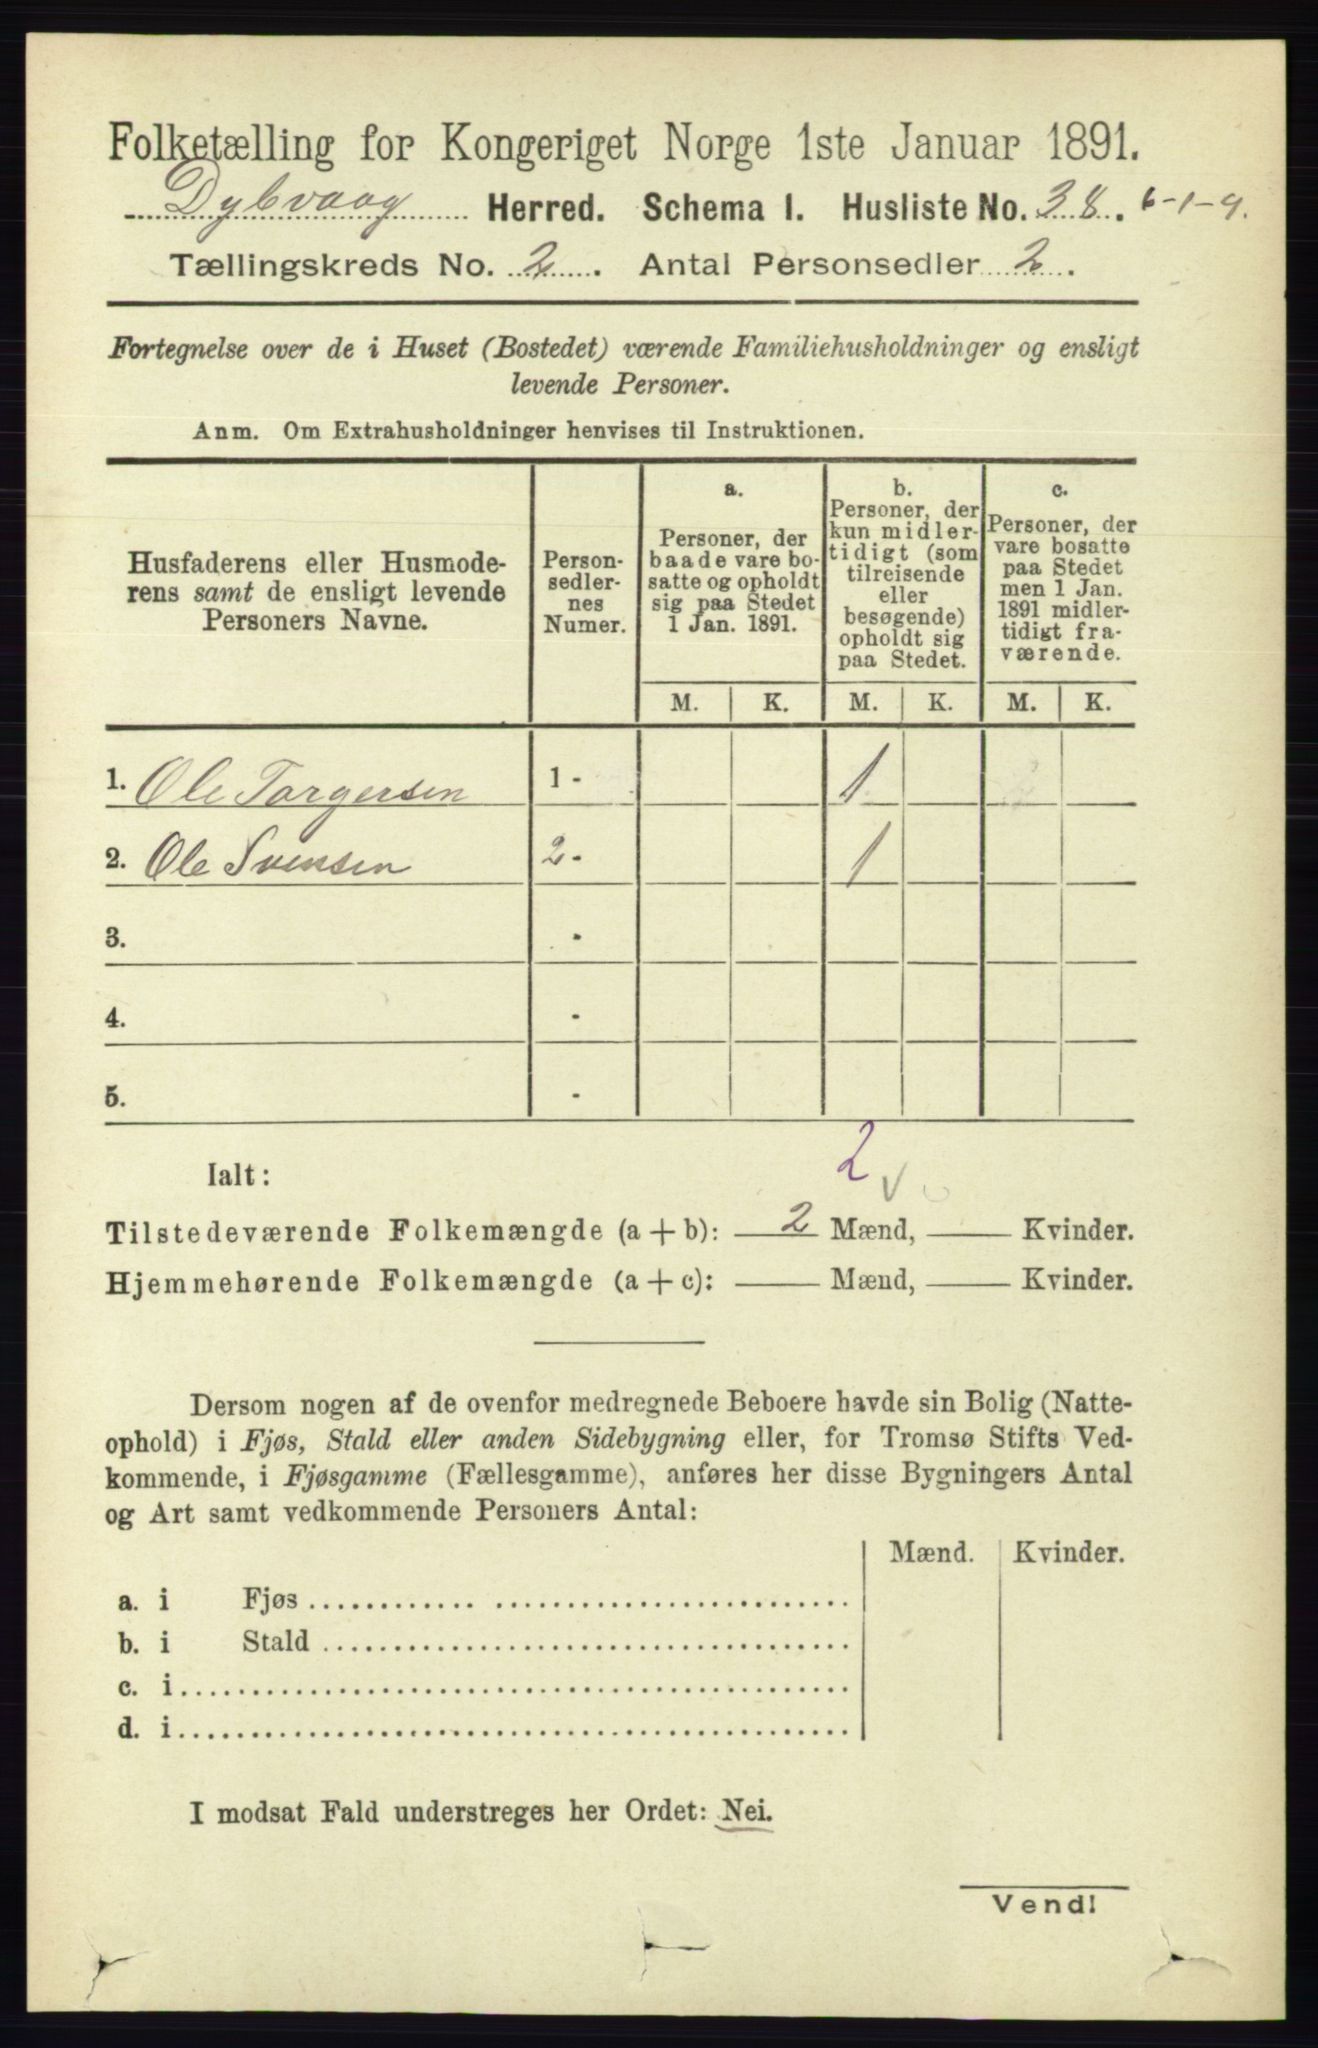 Folketælling for Kongeriget Norge 1ste Januar 1891.
Dybvaag Herred. Schema I. Husliste No. 38. 6-1-9.
Tællingskreds No. 2. Antal Personsedler 2.
Fortegnelse over de i Huset (Bostedet) værende Familiehusholdninger og ensligt
levende Personer.
Anm. Om Extrahusholdninger henvises til Instruktionen.
Husfaderens eller Husmode-
rens samt de ensligt levende
Personers Navne.
Person-
sedler-
nes
Numer.
a.
Personer, der
baade vare bo-
satte og opholdt
sig paa Stedet
1 Jan. 1891.
b.
Personer, der
kun midler-
tidigt (som
tilreisende
eller
besøgende)
opholdt sig
paa Stedet.
c.
Personer, der
vare bosatte
paa Stedet
men 1 Jan.
1891 midler-
tidigt fra-
værende.
M. K. M. K. M. K.
1. Ole Torgersen 1 - 1
2. Ole Svensen 2 - 1
3. -
4. -
5. -
2
Ialt:
Tilstedeværende Folkemængde (a + b): 2 Mænd, Kvinder.
Hjemmehørende Folkemængde (a + c): Mænd, Kvinder.
Dersom nogen af de ovenfor medregnede Beboere havde sin Bolig (Natte-
ophold) i Fjøs, Stald eller anden Sidebygning eller, for Tromsø Stifts Ved-
kommende, i Fjøsgamme (Fællesgamme), anføres her disse Bygningers Antal
og Art samt vedkommende Personers Antal:
Mænd. Kvinder.
a. i Fjøs
b. i Stald
c. i
d. i
I modsat Fald understreges her Ordet: Nei.
Vend!